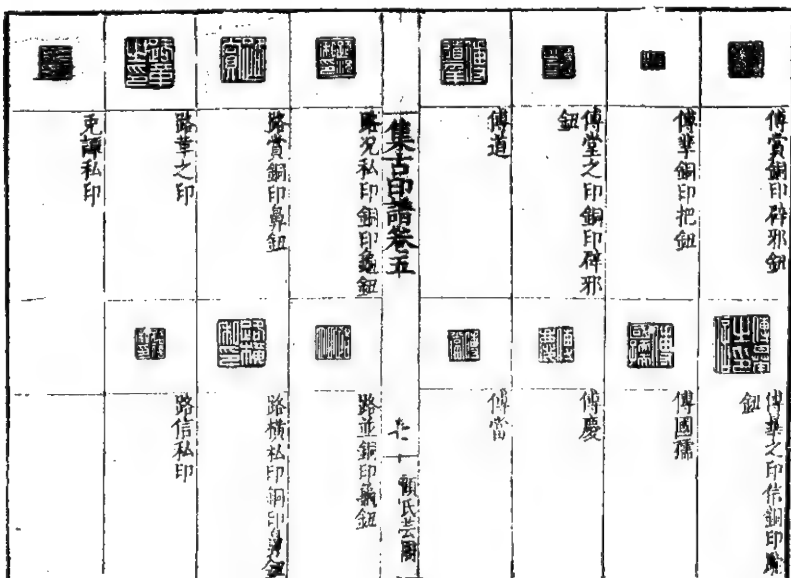 傅賞銅印辟邪鈕
傅華之印信銅印駝
鈕
傅犨銅印把鈕
傅國孺
傅堂之印銅印辟邪
鈕
傅慶
傅道
傅當
集古印譜卷五
顧氏芸閣
路況私印銅印龜鈕
路並銅印龜鈕
路賞銅印鼻鈕
路橫私印銅印鼻鈕
路華之印
路信私印
克譚私印